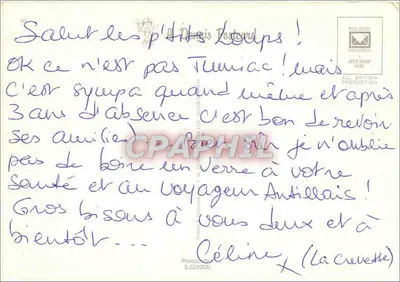 Salut les p'tits Loups !
OK ce n'est pas Tumiac ! mais
c'est sympa quand même et après
3 ans d'absence c'est bon de revoir
ses ami(ie)... Bien sûr je n'oublie
pas de boire un verre à votre
santé et au voyageur Antillais !
Gros bisous à vous deux et à
bientôt ...
Céline (La Crevette)
CPAPHIL
Postcard
ALL BRITISH
PRODUCTION